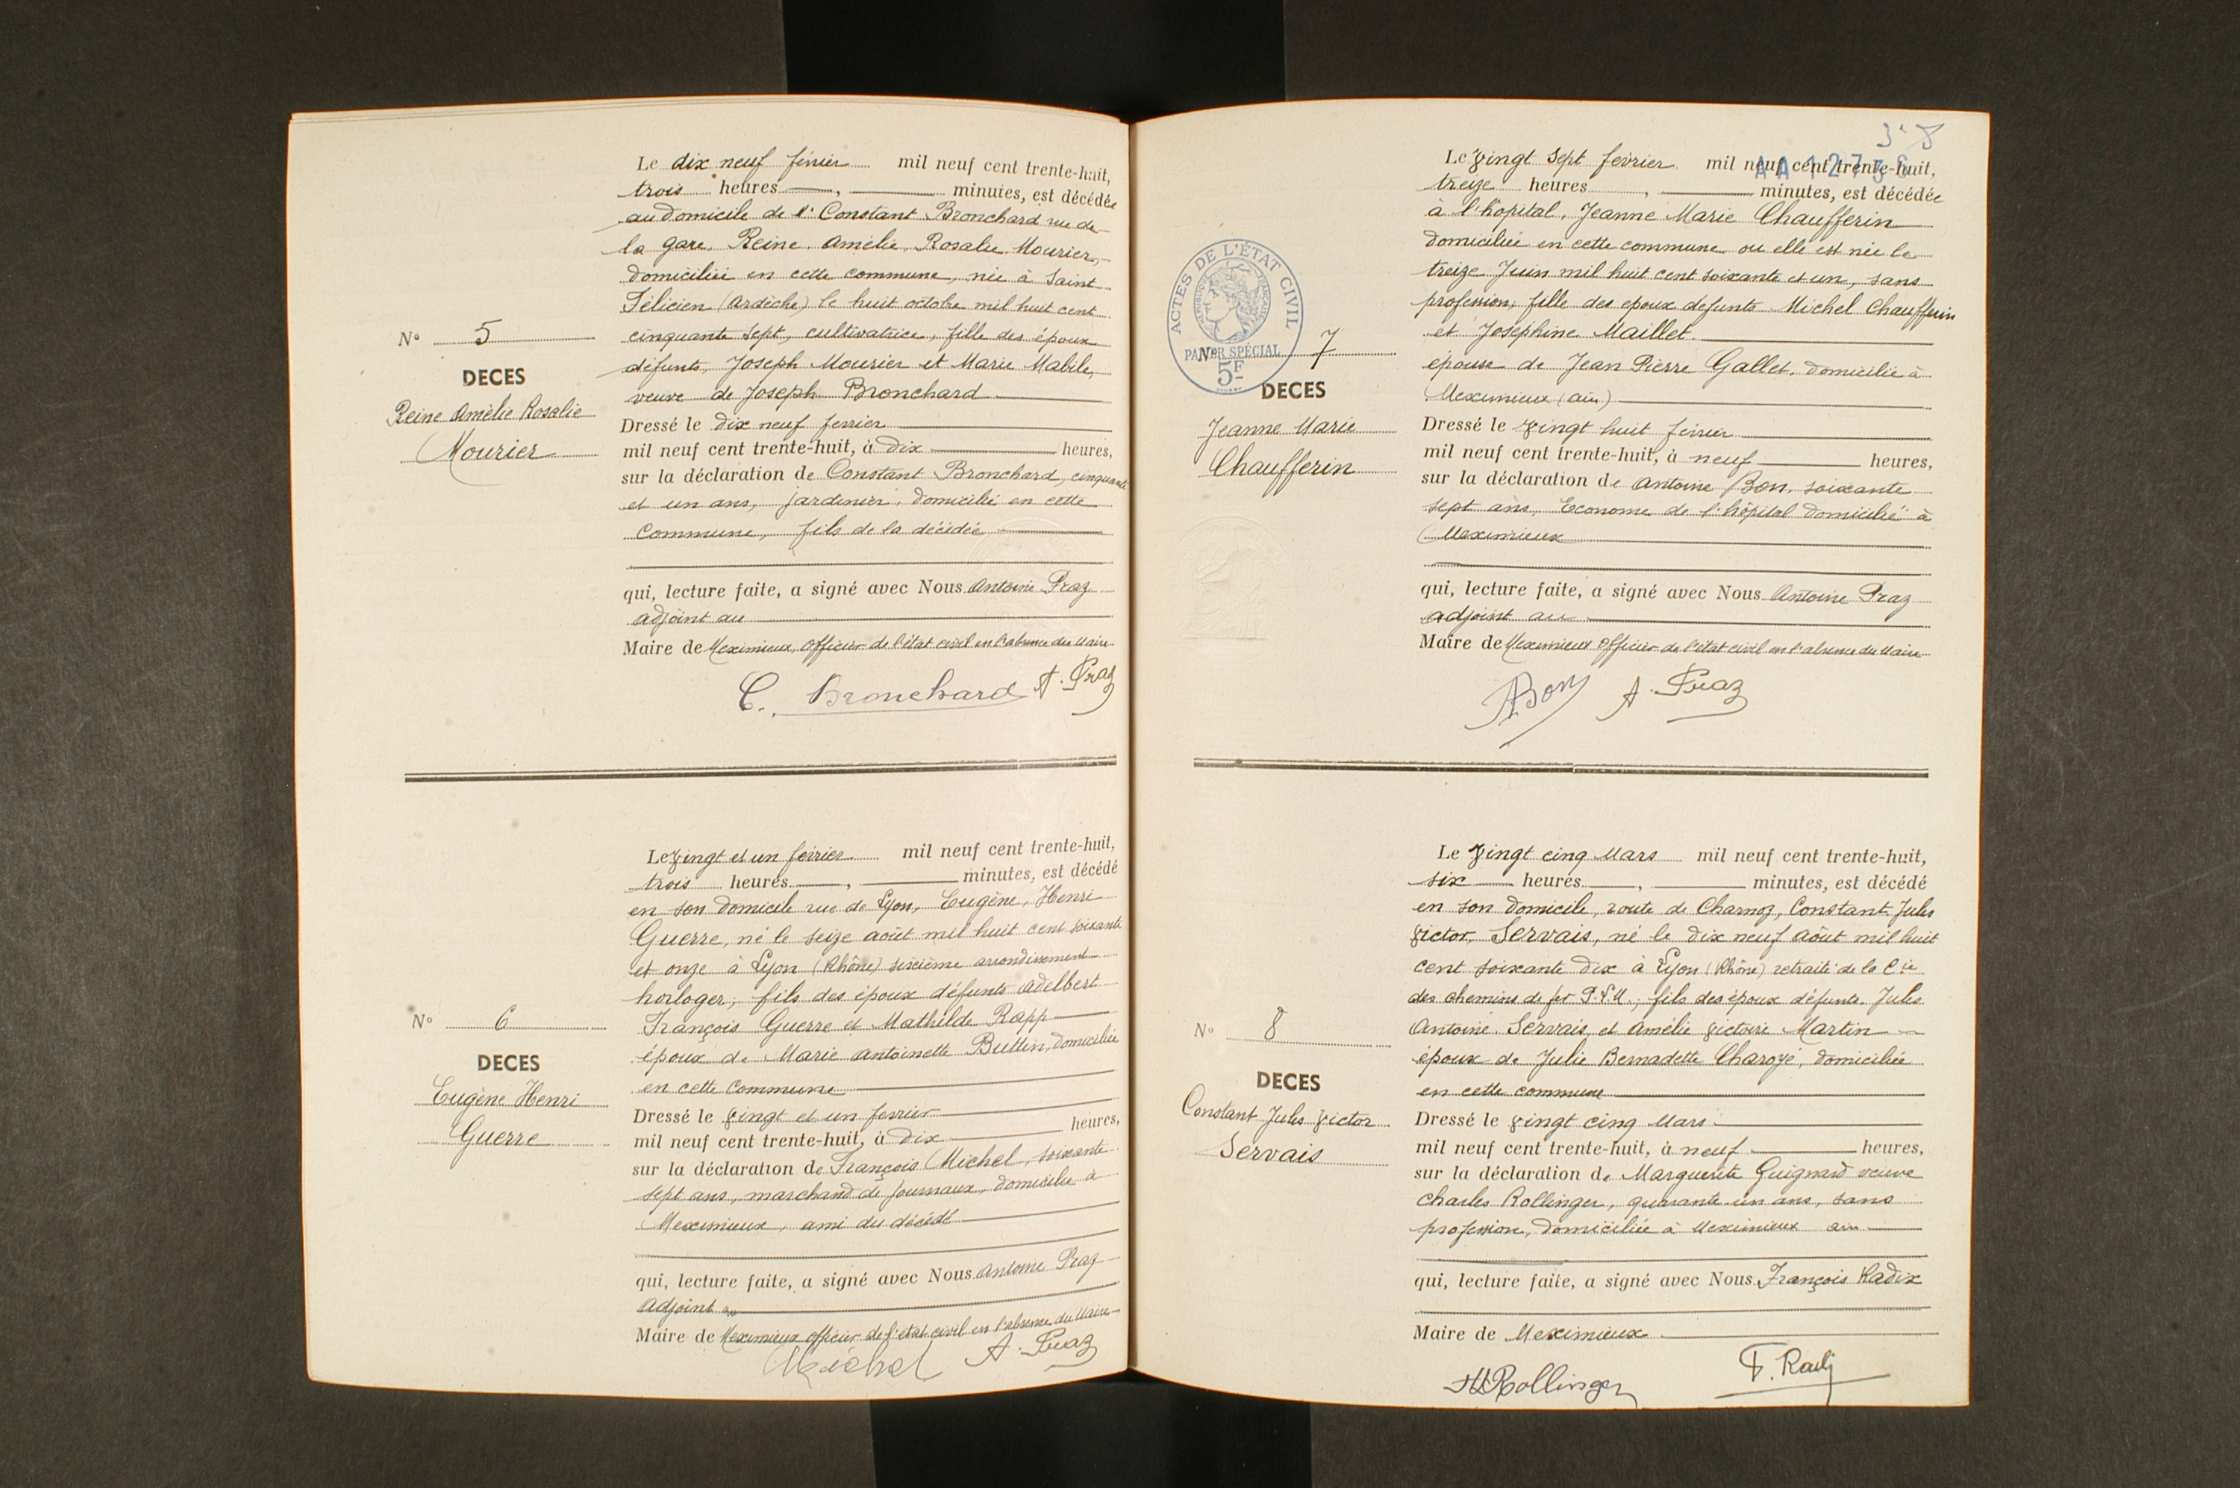 Le dix neuf février mil neuf cent trente-huit,
trois heures, minutes, est décédée
au domicile de Mr Constant Bronchard rue de
la gare, Reine Amélie Rosalie Mourier,
domiciliée en cette commune, née à Saint
Félicien (Ardèche) le huit octobre mil huit cent
cinquante sept, cultivatrice, fille des époux
défunts, Joseph Mourier et Marie Mabile,
veuve de Joseph Bronchard
N° 5
DECES
Reine Amélie Rosalie
Mourier
Dressé le dix neuf fevrier
mil neuf cent trente-huit, à dix heures,
sur la déclaration de Constant Bronchard, cinquante
et un ans, jardinier, domicilié en cette
commune, fils de la décédée
qui, lecture faite, a signé avec Nous Antoine Praz
adjoint au
Maire de Meximieux, officier de l'état civil en l'absence du Maire
C. Bronchard A. Praz
Le vingt et un février mil neuf cent trente-huit,
trois heures, minutes, est décédé
en son domicile rue de Lyon, Eugène, Henri
Guerre, né le seize août mil huit cent soixante
et onze à Lyon (Rhône) sixième arrondissement
horloger, fils des époux défunts Adelbert
François Guerre et Mathilde Rapp
époux de Marie Antoinette Buttin, domiciliée
en cette commune
N° 6
DECES
Eugène Henri
Guerre
Dressé le vingt et un fevrier
mil neuf cent trente-huit, à dix heures,
sur la déclaration de François Michel, soixante
sept ans, marchand de journaux, domicilié à
Meximieux, ami du décédé
qui, lecture faite, a signé avec Nous Antoine Praz
adjoint au
Maire de Meximieux officier de l'état civil en l'absence du Maire
Michel A. Praz
Le vingt sept fevrier mil neuf cent trente-huit,
treize heures, minutes, est décédée
à l'hôpital, Jeanne Marie Chaufferin
domiciliée en cette commune ou elle est née le
treize Juin mil huit cent soixante et un, sans
profession, fille des epoux defunts Michel Chaufferin
et Joséphine Maillet
épouse de Jean Pierre Gallet, domicilié à
Meximieux (ain)
ACTES DE L'ÉTAT CIVIL
PAPIER SPÉCIAL
5F
N° 7
DECES
Jeanne Marie
Chaufferin
Dressé le vingt huit février
mil neuf cent trente-huit, à neuf heures,
sur la déclaration de Antoine Bon, soixante
sept ans, Econome de l'hôpital domicilié à
Meximieux
qui, lecture faite, a signé avec Nous Antoine Praz
adjoint au
Maire de Meximieux officier de l'état civil en l'absence du Maire
ABon A. Praz
Le vingt cinq Mars mil neuf cent trente-huit,
six heures, minutes, est décédé
en son domicile, route de Charnoz, Constant Jules
Victor, Servais, né le dix neuf Aôut mil huit
cent soixante dix à Lyon (Rhône) retraité de la Cie
des chemins de fer P.L.M., fils des époux défunts Jules
Antoine Servais et Amélie Victoire Martin
époux de Julie Bernadette Charoyé, domiciliée
en cette commune
N° 8
DECES
Constant Jules Victor
Servais
Dressé le vingt cinq Mars
mil neuf cent trente-huit, à neuf heures,
sur la déclaration de Marguerite Guignard veuve
Charles Rollinger, quarante un ans, sans
profession, domiciliée à Meximieux ain
qui, lecture faite, a signé avec Nous François Radix
Maire de Meximieux
MRollinger F. Radix